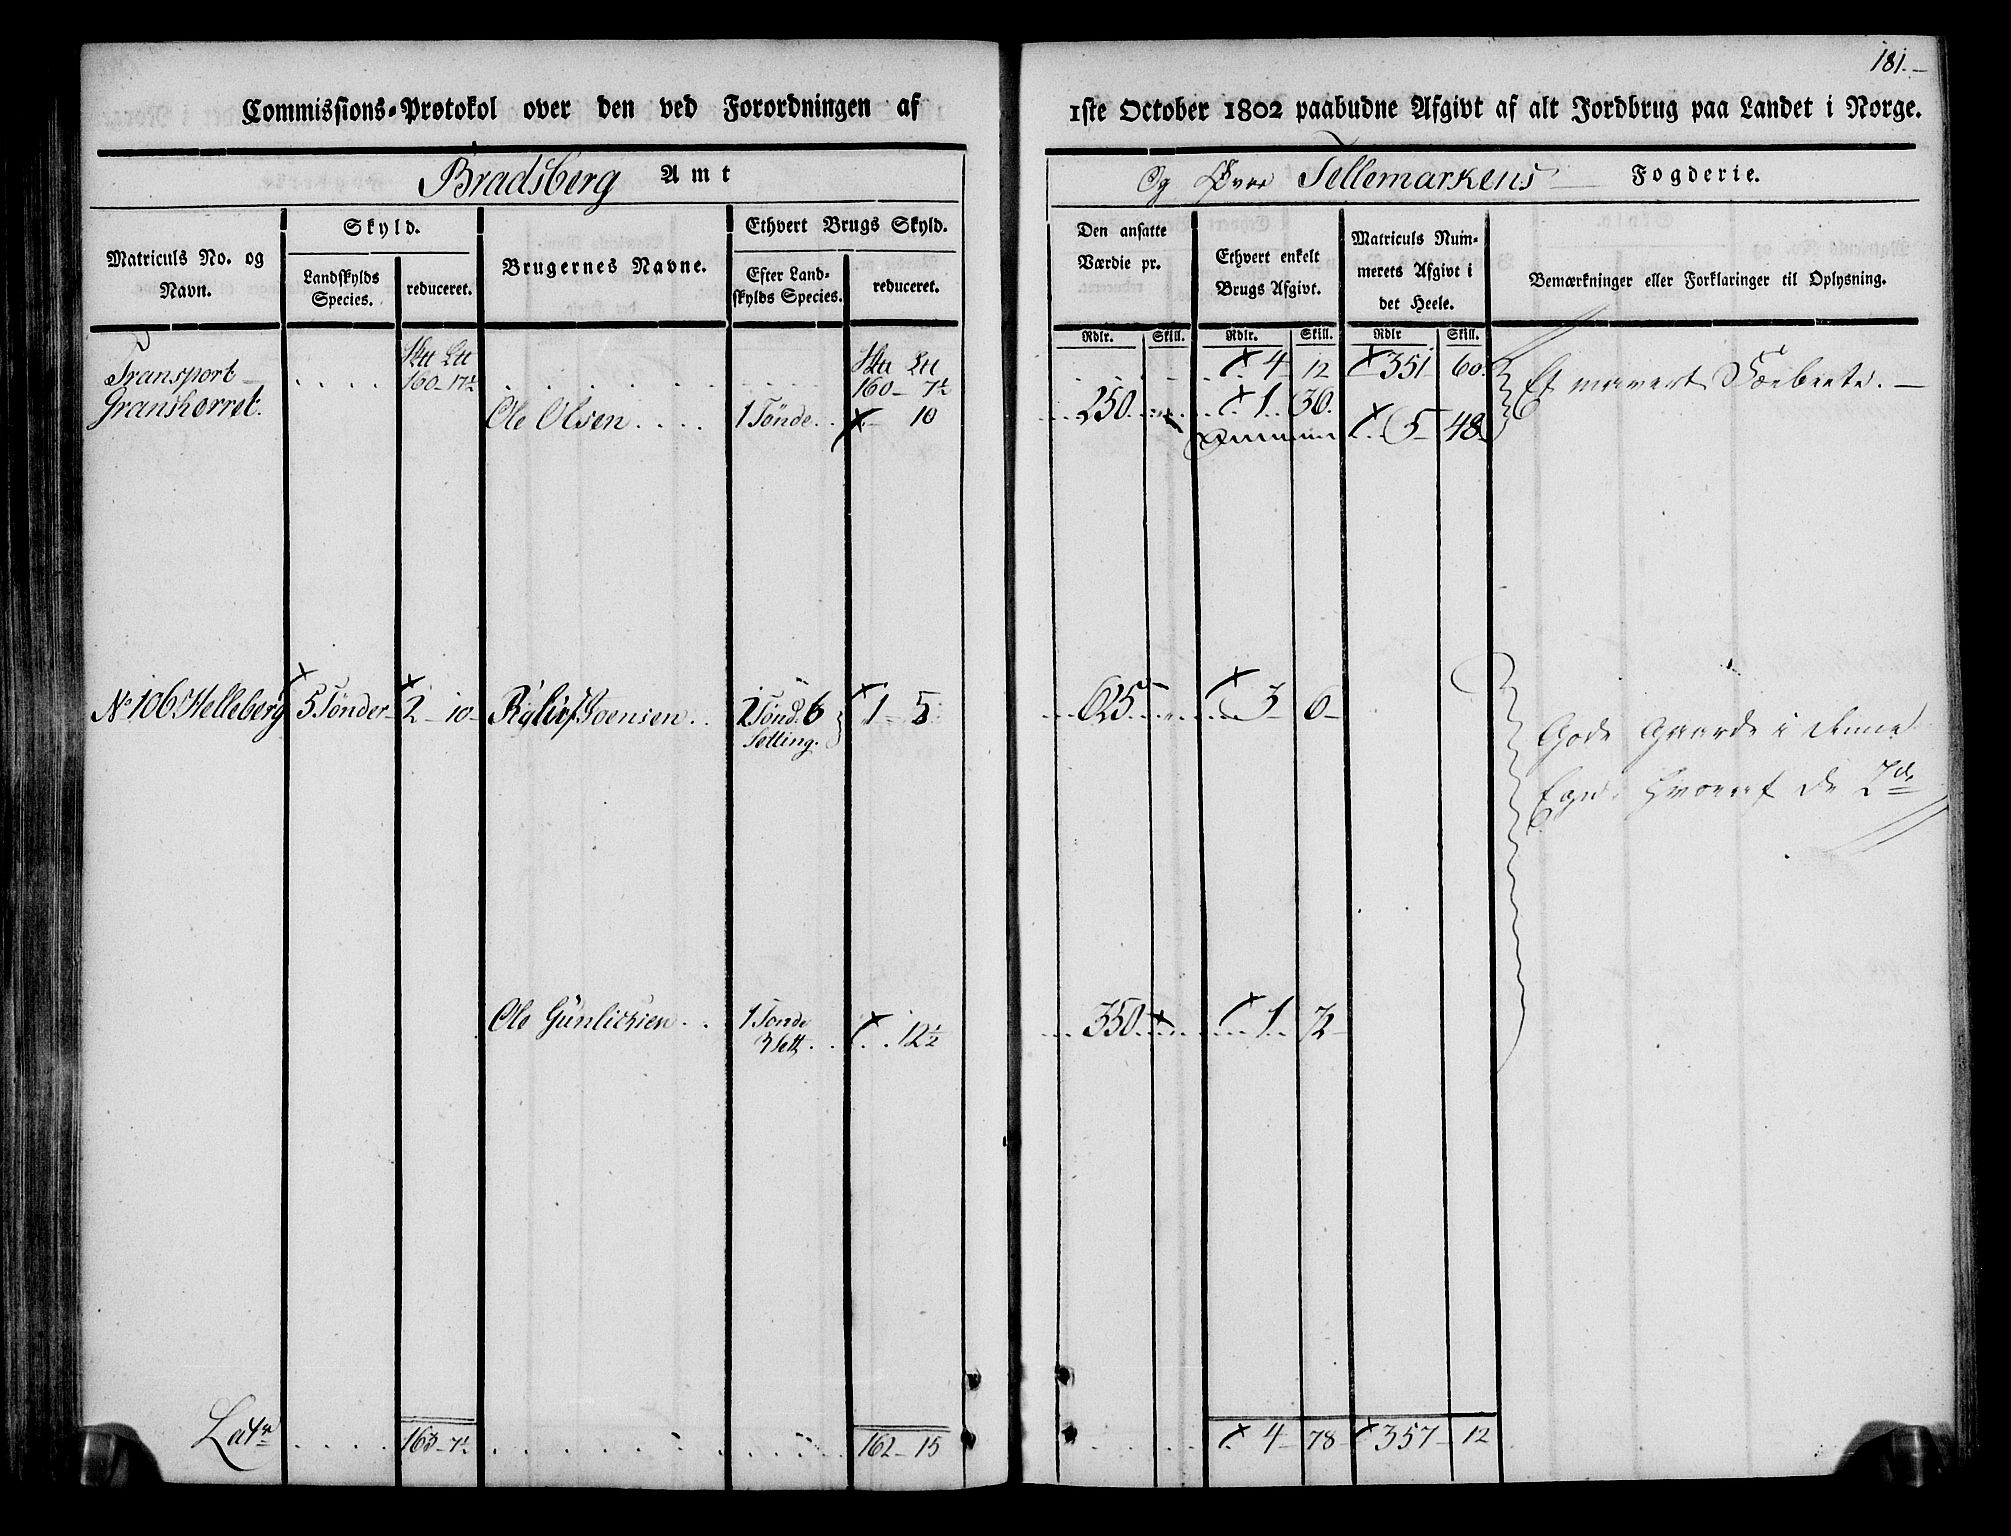 181.
Commissions-Protokol over den ved Forordningen af
1ste October 1802 paabudne Afgivt af alt Jordbrug paa Landet i Norge.
Bradsberg Amt
Og Øvre Tellemarkens Fogderie.
Matriculs No. og Navn.
Skyld.
Landskylds Species.
reduceret.
Brugernes Navne.
Ethvert Brugs Skyld.
Efter Landskylds Species.
reduceret.
Den ansatte Værdie pr.
Rdlr. Skill.
Ethvert enkelt Brugs Afgivt.
Rdlr. Skill.
Matriculs Nummerets Afgivt i det Heele.
Rdlr Skill.
Bemærkninger eller Forklaringer til Oplysning.
Transport 160 - 17½ 160 - 7½ 4 12 351 60
Granskerret. Ole Olsen 1 Tönde 10 250 1 36 5 48
Et maadeligt
No 106 Helleberg 5 Tönder 2 - 10 Joensen 2 Tönd. 6 Setting. 1 - 5 625 3 0
Gode Gaarde i denne
Egn, hvoraf de 2de
Ole Gunlichsen 1 Tonde 3 Sett 12½ 350 1 72
Latr 163 - 7½ 162 - 15 4 78 357 12